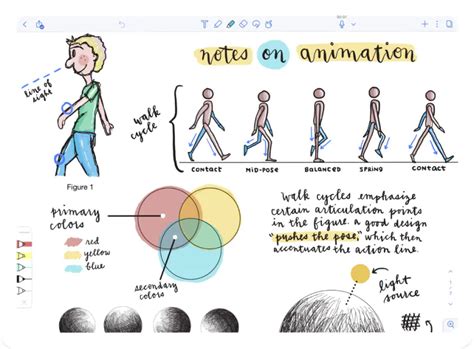 notes on animation
line of sight
walk cycle
Figure 1
CONTACT
MID-POSE
BALANCED
SPRING
CONTACT
primary colors
red
yellow
blue
secondary colors
Walk cycles emphasize
certain articulation points
in the figure. a good design
"pushes the pose," which then
accentuates the action line.
light source